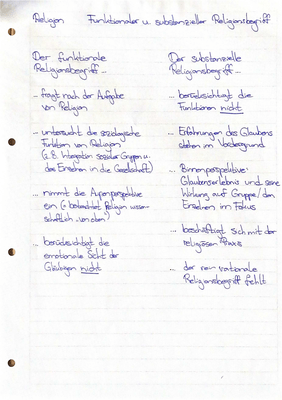 Religion Funktionaler u. substanzieller Religionsbegriff
Der funktionale
Religionsbegriff ...
... fragt nach der Aufgabe
von Religion
... untersucht die soziologische
Funktion von Religion
(z.B. Integration sozialer Gruppen u.
des Einzelnen in die Gesellschaft)
... nimmt die Außenperspektive
ein (= betrachtet Religion wissen-
schaftlich „von außen“)
... berücksichtigt die
emotionale Sicht der
Gläubigen nicht
Der substanzielle
Religionsbegriff ...
... berücksichtigt die
Funktionen nicht
... Erfahrungen des Glaubens
stehen im Vordergrund
... Binnenperspektive:
Glaubenserlebnis und seine
Wirkung auf Gruppe / den
Einzelnen im Fokus
... beschäftigt sich mit der
religiösen Praxis
... der rein rationale
Religionsbegriff fehlt